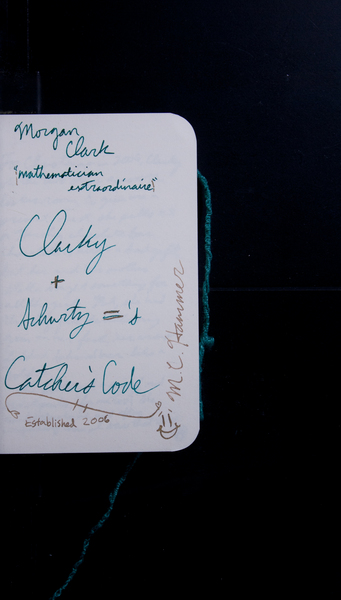 Morgan
Clark
"mathematician
extraordinaire"
Clarky
+
Schwrty ='s
Catcher's Code
Established 2006
M.C. Hammer